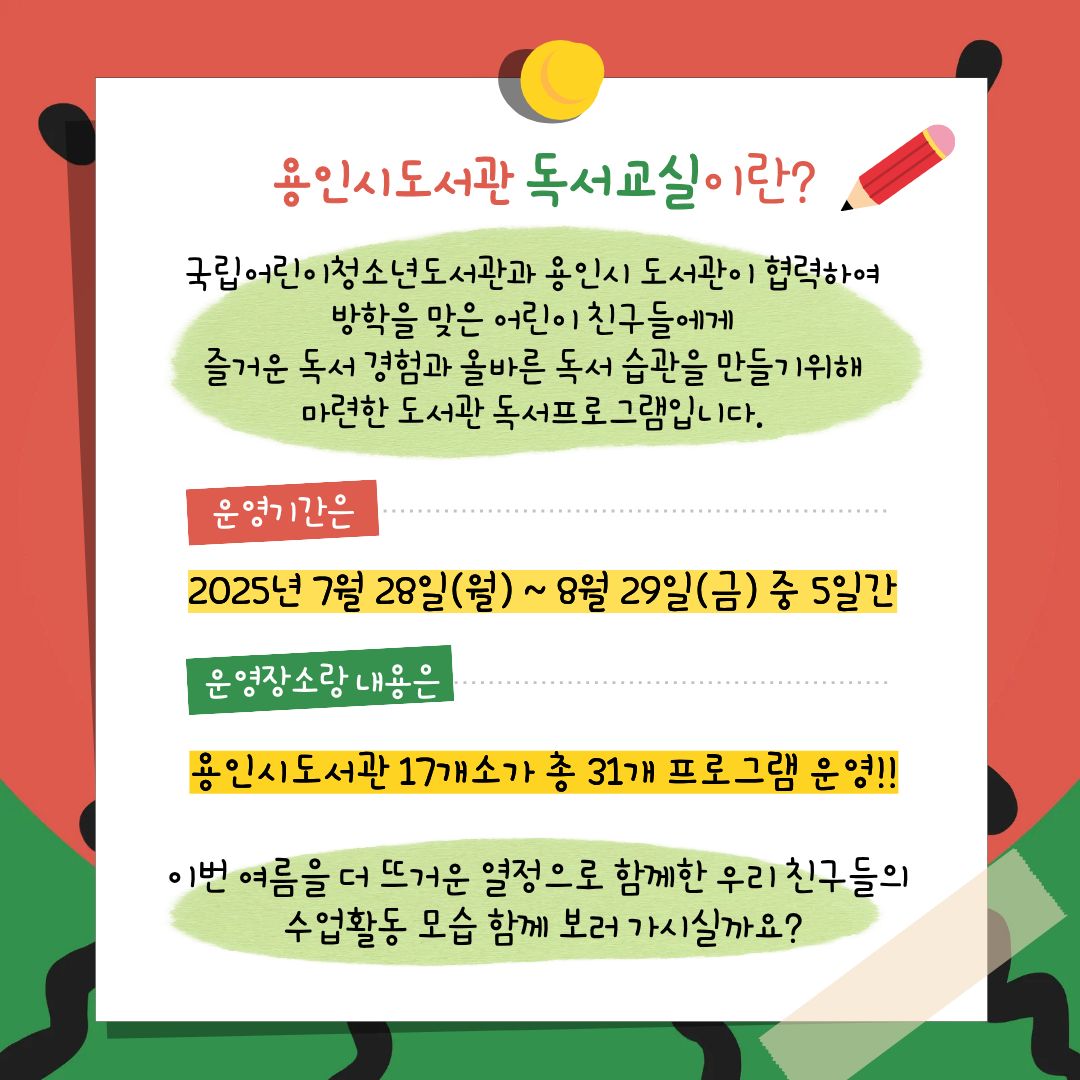 용인시도서관 독서교실이란?
국립어린이청소년도서관과 용인시 도서관이 협력하여
방학을 맞은 어린이 친구들에게
즐거운 독서 경험과 올바른 독서 습관을 만들기위해
마련한 도서관 독서프로그램입니다.
운영기간은
2025년 7월 28일(월) ~ 8월 29일(금) 중 5일간
운영장소랑 내용은
용인시도서관 17개소가 총 31개 프로그램 운영!!
이번 여름을 더 뜨거운 열정으로 함께한 우리 친구들의
수업활동 모습 함께 보러 가시실까요?